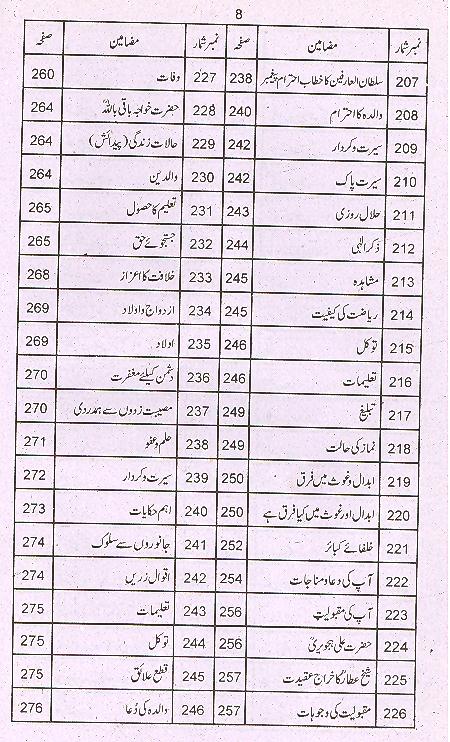 8
نمبر شمار مضامین صفحہ نمبر شمار مضامین صفحہ
207 سلطان العارفین کا خطاب احترام پیغمبر 238 227 وفات 260
208 والدہ کا احترام 240 228 حضرت خواجہ باقی باللہؒ 264
209 سیرت و کردار 242 229 حالات زندگی (پیدائش) 264
210 سیرت پاک 242 230 والدین 264
211 حلال روزی 243 231 تعلیم کا حصول 265
212 ذکر الٰہی 244 232 جستجوئے حق 265
213 مشاہدہ 245 233 خلافت کا اعزاز 268
214 ریاضت کی کیفیت 245 234 ازدواج و اولاد 269
215 توکل 246 235 اولاد 269
216 تعلیمات 246 236 دشمن کیلئے مغفرت 270
217 تبلیغ 249 237 مصیبت زدوں سے ہمدردی 270
218 نماز کی حالت 249 238 حلم و عفو 271
219 ابدال و غوث میں فرق 250 239 سیرت و کردار 272
220 ابدال اور غوث میں کیا فرق ہے 250 240 اہم حکایات 273
221 خلفائے کبائر 252 241 جانوروں سے سلوک 274
222 آپ کی دعا و مناجات 254 242 اقوال زریں 274
223 آپ کی مقبولیت 256 243 تعلیمات 275
224 حضرت علی ہجویریؒ 256 244 توکل 275
225 شیخ عطارؒ کا خراج عقیدت 257 245 قطع علائق 275
226 مقبولیت کی وجوہات 257 246 والدہ کی دُعا 276